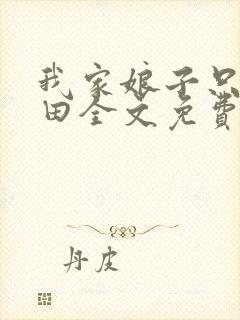 我家娘子只
田全文免费
丹皮